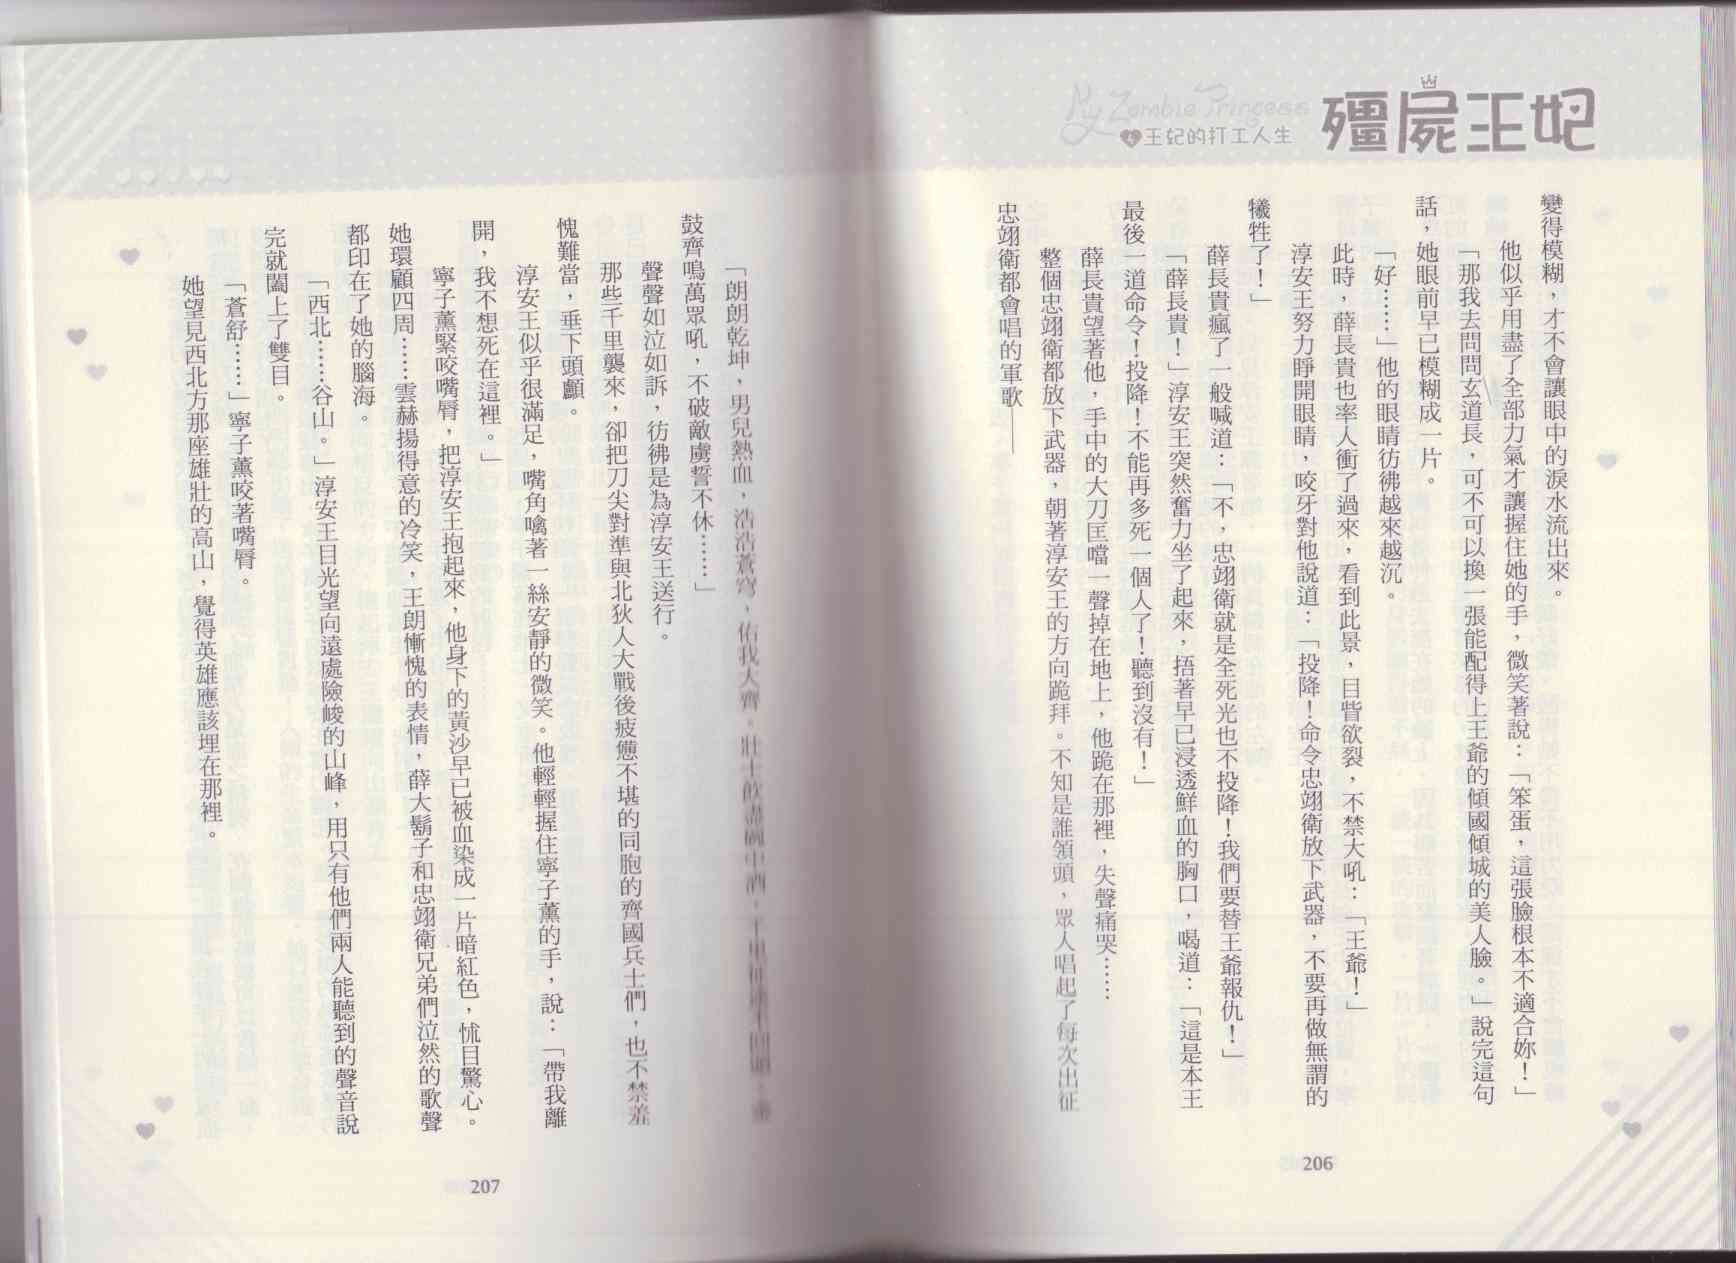 My Zombie Princess
4 王妃的打工人生
殭屍王妃
變得模糊，才不會讓眼中的淚水流出來。
他似乎用盡了全部力氣才讓握住她的手，微笑著說：「笨蛋，這張臉根本不適合妳！」
「那我去問問玄道長，可不可以換一張能配得上王爺的傾國傾城的美人臉。」說完這句
話，她眼前早已模糊成一片。
「好……」他的眼睛彷彿越來越沉。
此時，薛長貴也率人衝了過來，看到此景，目眥欲裂，不禁大吼：「王爺！」
淳安王努力睜開眼睛，咬牙對他說道：「投降！命令忠翊衛放下武器，不要再做無謂的
犧牲了！」
薛長貴瘋了一般喊道：「不，忠翊衛就是全死光也不投降！我們要替王爺報仇！」
「薛長貴！」淳安王突然奮力坐了起來，捂著早已浸透鮮血的胸口，喝道：「這是本王
最後一道命令！投降！不能再多死一個人了！聽到沒有！」
薛長貴望著他，手中的大刀匡噹一聲掉在地上，他跪在那裡，失聲痛哭……
整個忠翊衛都放下武器，朝著淳安王的方向跪拜。不知是誰領頭，眾人唱起了每次出征
忠翊衛都會唱的軍歌——
206
「朗朗乾坤，男兒熱血，浩浩蒼穹，佑我大齊。壯士飲盡碗中酒，
鼓齊鳴萬眾吼，不破敵虜誓不休……」
聲聲如泣如訴，彷彿是為淳安王送行。
那些千里襲來，卻把刀尖對準與北狄人大戰後疲憊不堪的同胞的齊國兵士們，也不禁羞
愧難當，垂下頭顱。
淳安王似乎很滿足，嘴角噙著一絲安靜的微笑。他輕輕握住寧子薰的手，說：「帶我離
開，我不想死在這裡。」
寧子薰緊咬嘴脣，把淳安王抱起來，他身下的黃沙早已被血染成一片暗紅色，怵目驚心。
她環顧四周……雲赫揚得意的冷笑，王朗慚愧的表情，薛大鬍子和忠翊衛兄弟們泣然的歌聲
都印在了她的腦海。
「西北……谷山。」淳安王目光望向遠處險峻的山峰，用只有他們兩人能聽到的聲音說
完就闔上了雙目。
「蒼舒……」寧子薰咬著嘴脣。
她望見西北方那座雄壯的高山，覺得英雄應該埋在那裡。
207